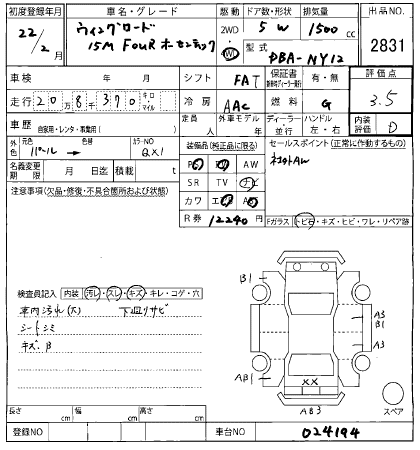 初度登録年月
22/2月
車名・グレード
ウィングロード
15M FOUR オーセンティック
駆動
4WD
ドア数・形状
5 W
排気量
1500 cc
型式
DBA-NY12
出品NO.
2831
車検 年 月
シフト FAT
保証書 有・無
評価点 3.5
走行 20万8千370 キロ マイル
冷房 AAC
燃料 G
車歴 自家用・レンタ・事業用( )
定員 人
外車モデル 年
ディーラー・並行
ハンドル 左・右
内装評価 D
外色 元色 パール → 色替
カラーNO QX1
名義変更期限 月 日迄
積載 t
装備品(純正品に限る)
PS PW AW
SR TV ナビ
カワ エアB ABS
R券 12240円
セールスポイント(正常に作動するもの)
社外AW
注意事項(欠品・修復・不具合箇所および状態)
Fガラス(トビ石・キズ・ヒビ・ワレ・リペア跡)
検査員記入 内装(汚レ・スレ・キズ・キレ・コゲ・穴)
車内汚れ(大) 下廻りサビ
シートシミ
キズ.B
B1
A3
B1
A3
AB1
XX
AB3
スペア
長さ cm
幅 cm
高さ cm
登録NO
車台NO 024194